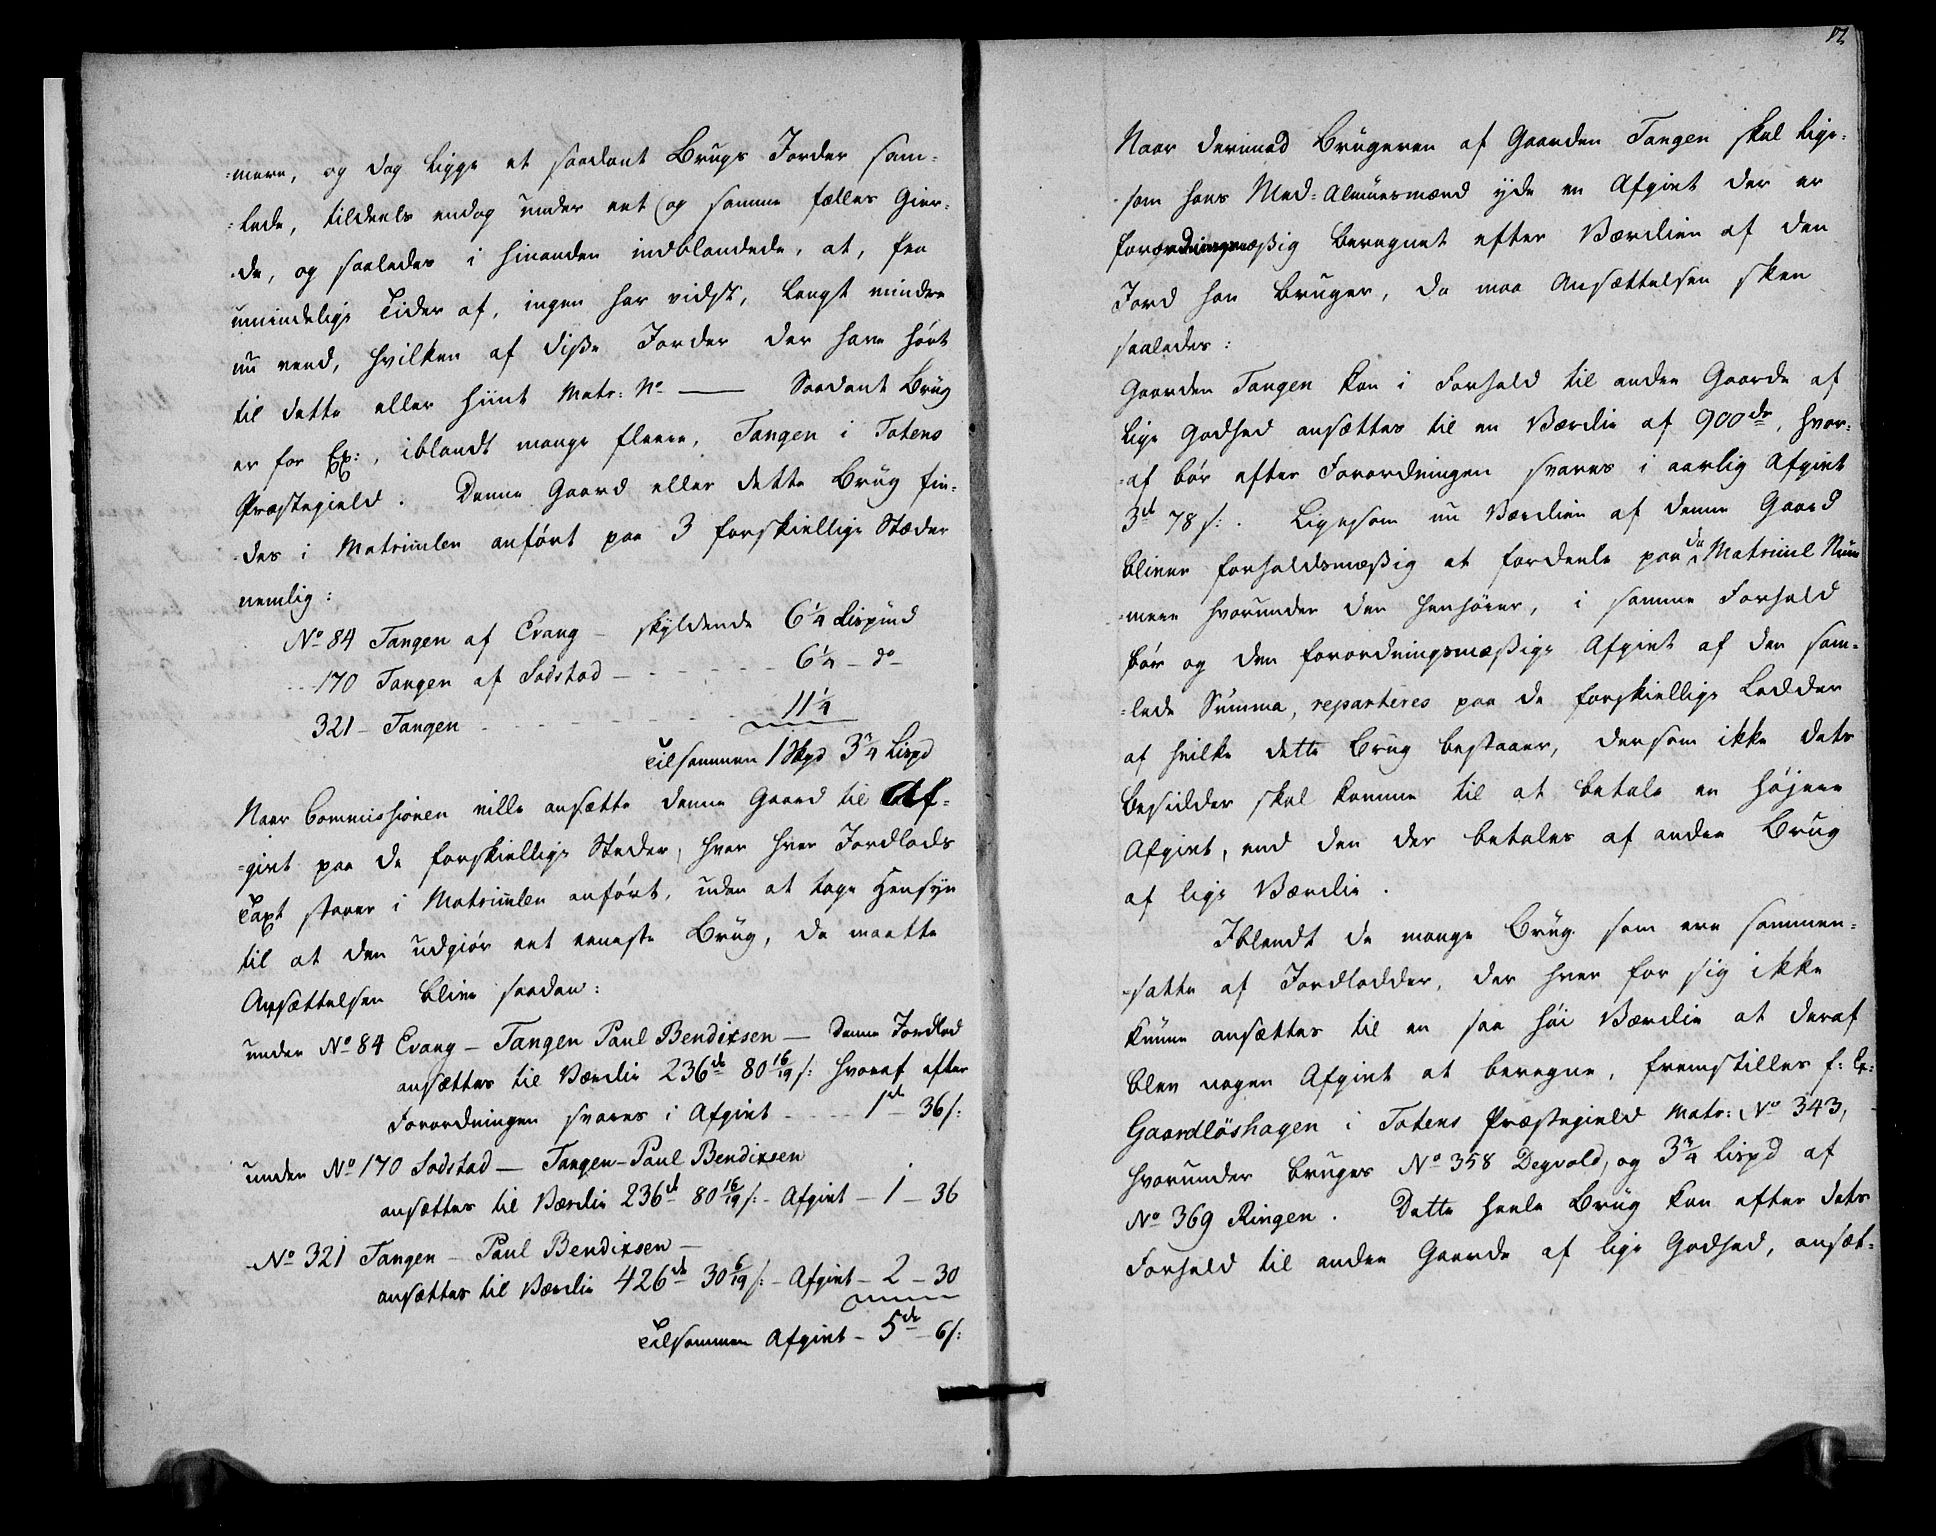 -mere, og dog ligge et saadant Brugs Jorder sam-
-lede, tildeels endog under eet og samme fælles Gier-
-de, og saaledes i hinanden indblandede, at, fra
umindelige Tider af, ingen har vidst, langt mindre
nu veed, hvilken af disse Jorder der have hørt
til dette eller hiint Matr: No — Saadant Brug
er for Ex:, iblandt mange fleere, Tangen i Totens
Præstegield. Denne Gaard eller dette Brug fin-
-des i Matriculen anført paa 3 forskiellige Stæder
nemlig:
No 84 Tangen af Evang - skyldende 6 1/4 Lispund
- 170 Tangen af Sodstad - - - - 6 1/4 - do -
321 - Tangen - - - - - - 11 1/4
Tilsammen 1 Skpd 3 3/4 Lispd
Naar Commissionen ville ansætte denne Gaard til Af-
-givt paa de forskiellige Steder, hvor hver Jordlods
Taxt staaer i Matriculen anført, uden at tage Hensyn
til at den udgiør eet eeneste Brug, da maatte
Ansættelsen blive saadan:
under No 84 Evang - Tangen Paul Bendixsen - denne Jordlod
ansættes til Værdie 236 d 80 16/19 s: hvoraf efter
Forordningen svares i Afgivt - - - 1 d - 36 s:
under No 170 Sodstad - Tangen - Paul Bendixsen
ansættes til Værdie 236 d 80 16/19 s: - Afgivt - 1 - 36
- No 321 Tangen - Paul Bendixsen -
ansættes til Værdie 426 d 30 6/19 s: - Afgivt - 2 - 30
Tilsammen Afgivt - 5 d - 6 s:
12
Naar derimod Brugeren af Gaarden Tangen skal lige-
-som hans Med-Almuesmænd yde en Afgivt der er
forordningsmæssig beregnet efter Værdien af den
Jord han bruger, da maa Ansættelsen skee
saaledes:
Gaarden Tangen kan i Forhold til andre Gaarde af
lige Godhed ansættes til en Værdie af 900 d, hvor-
-af bør efter Forordningen svares i aarlig Afgivt
3 d 78 s:. Ligesom nu Værdien af denne Gaard
bliver forholdsmæssig at fordeele paa de Matricul Num
-mere hvorunder den henhører, i samme Forhold
bør og den forordningsmæssige Afgivt af den sam-
-lede Summa, reparteres paa de forskiellige Lodder
af hvilke dette Brug bestaaer, dersom ikke dets
Besidder skal komme til at betale en højere
Afgivt, end den der betales af andre Brug
af lige Værdie.
Iblandt de mange Brug som ere sammen-
-satte af Jordlodder, der hver for sig ikke
kunne ansættes til en saa høi Værdie at deraf
blev nogen Afgivt at beregne, fremstilles f: Ex:
Gaardløshagen i Totens Præstegield Matr: No 343,
hvorunder bruges No 358 Degvold, og 3 3/4 Lispd af
No 369 Ringen. Dette heele Brug kan efter dets
Forhold til andre Gaarde af lige Godhed, ansæt-